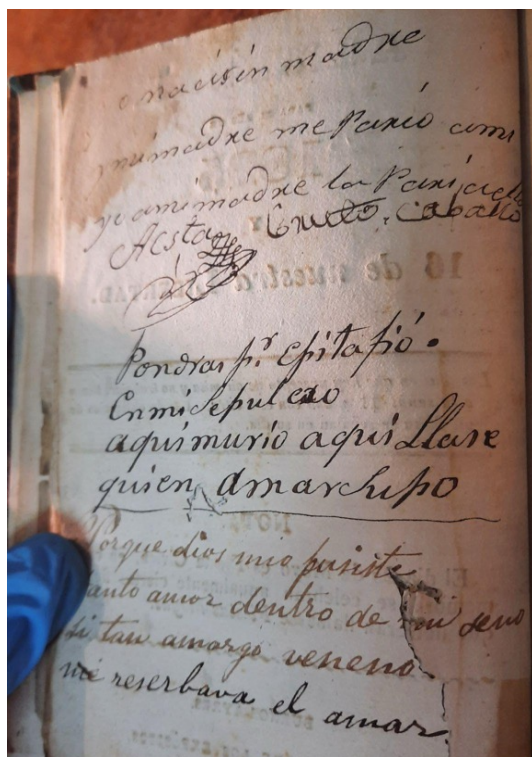 nacisin madre
mi madre me Pario ami
yo ami madre la Pari aella
Acsta Cabállo
16 de nuestra LIBERTAD.
Pondras p.r epitafió.
En mi Sepulcro
aqui murio aqui Llase
quien amarsupo
NOTA
Porque dios mio pusiste
tanto amor dentro de mi seno
si tan amargo veneno
me reserbava el amar.